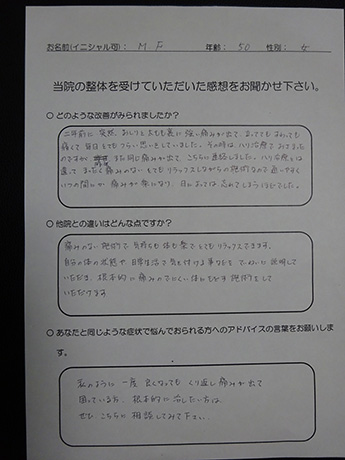 お名前(イニシャル可): M F 年齢: 50 性別: 女
当院の整体を受けていただいた感想をお聞かせ下さい。
○ どのような改善がみられましたか?
二年前に 突然、おしりと太ももの裏に強い痛みが出て、立っても すわっても
痛くて 毎日 とても つらい思いをしていました。その時は、ハリ治療で おさまった
のですが また同じ痛みが出て、こちらに連絡しました。ハリ治療とは
違って まったく痛みのない とても リラックスしながらの施術なので 通いやすく
いつの間にか 痛みが 楽になり 日によっては 忘れてしまうほどでした。
○ 他院との違いはどんな点ですか?
痛みのない施術で 気持ちも 体も 楽で とても リラックスできます。
自分の体の状態や 日常生活で 気を付ける事なども ていねいに 説明して
いただき、根本的に 痛みのでにくい 体にもどす 施術をして
いただけます
○ あなたと同じような症状で悩んでおられる方へのアドバイスの言葉をお願いしま
す。
私のように 一度 良くなっても くり返し 痛みが 出て
困っている方、根本的に 治したい方は、
ぜひ こちらに 相談してみて下さい。